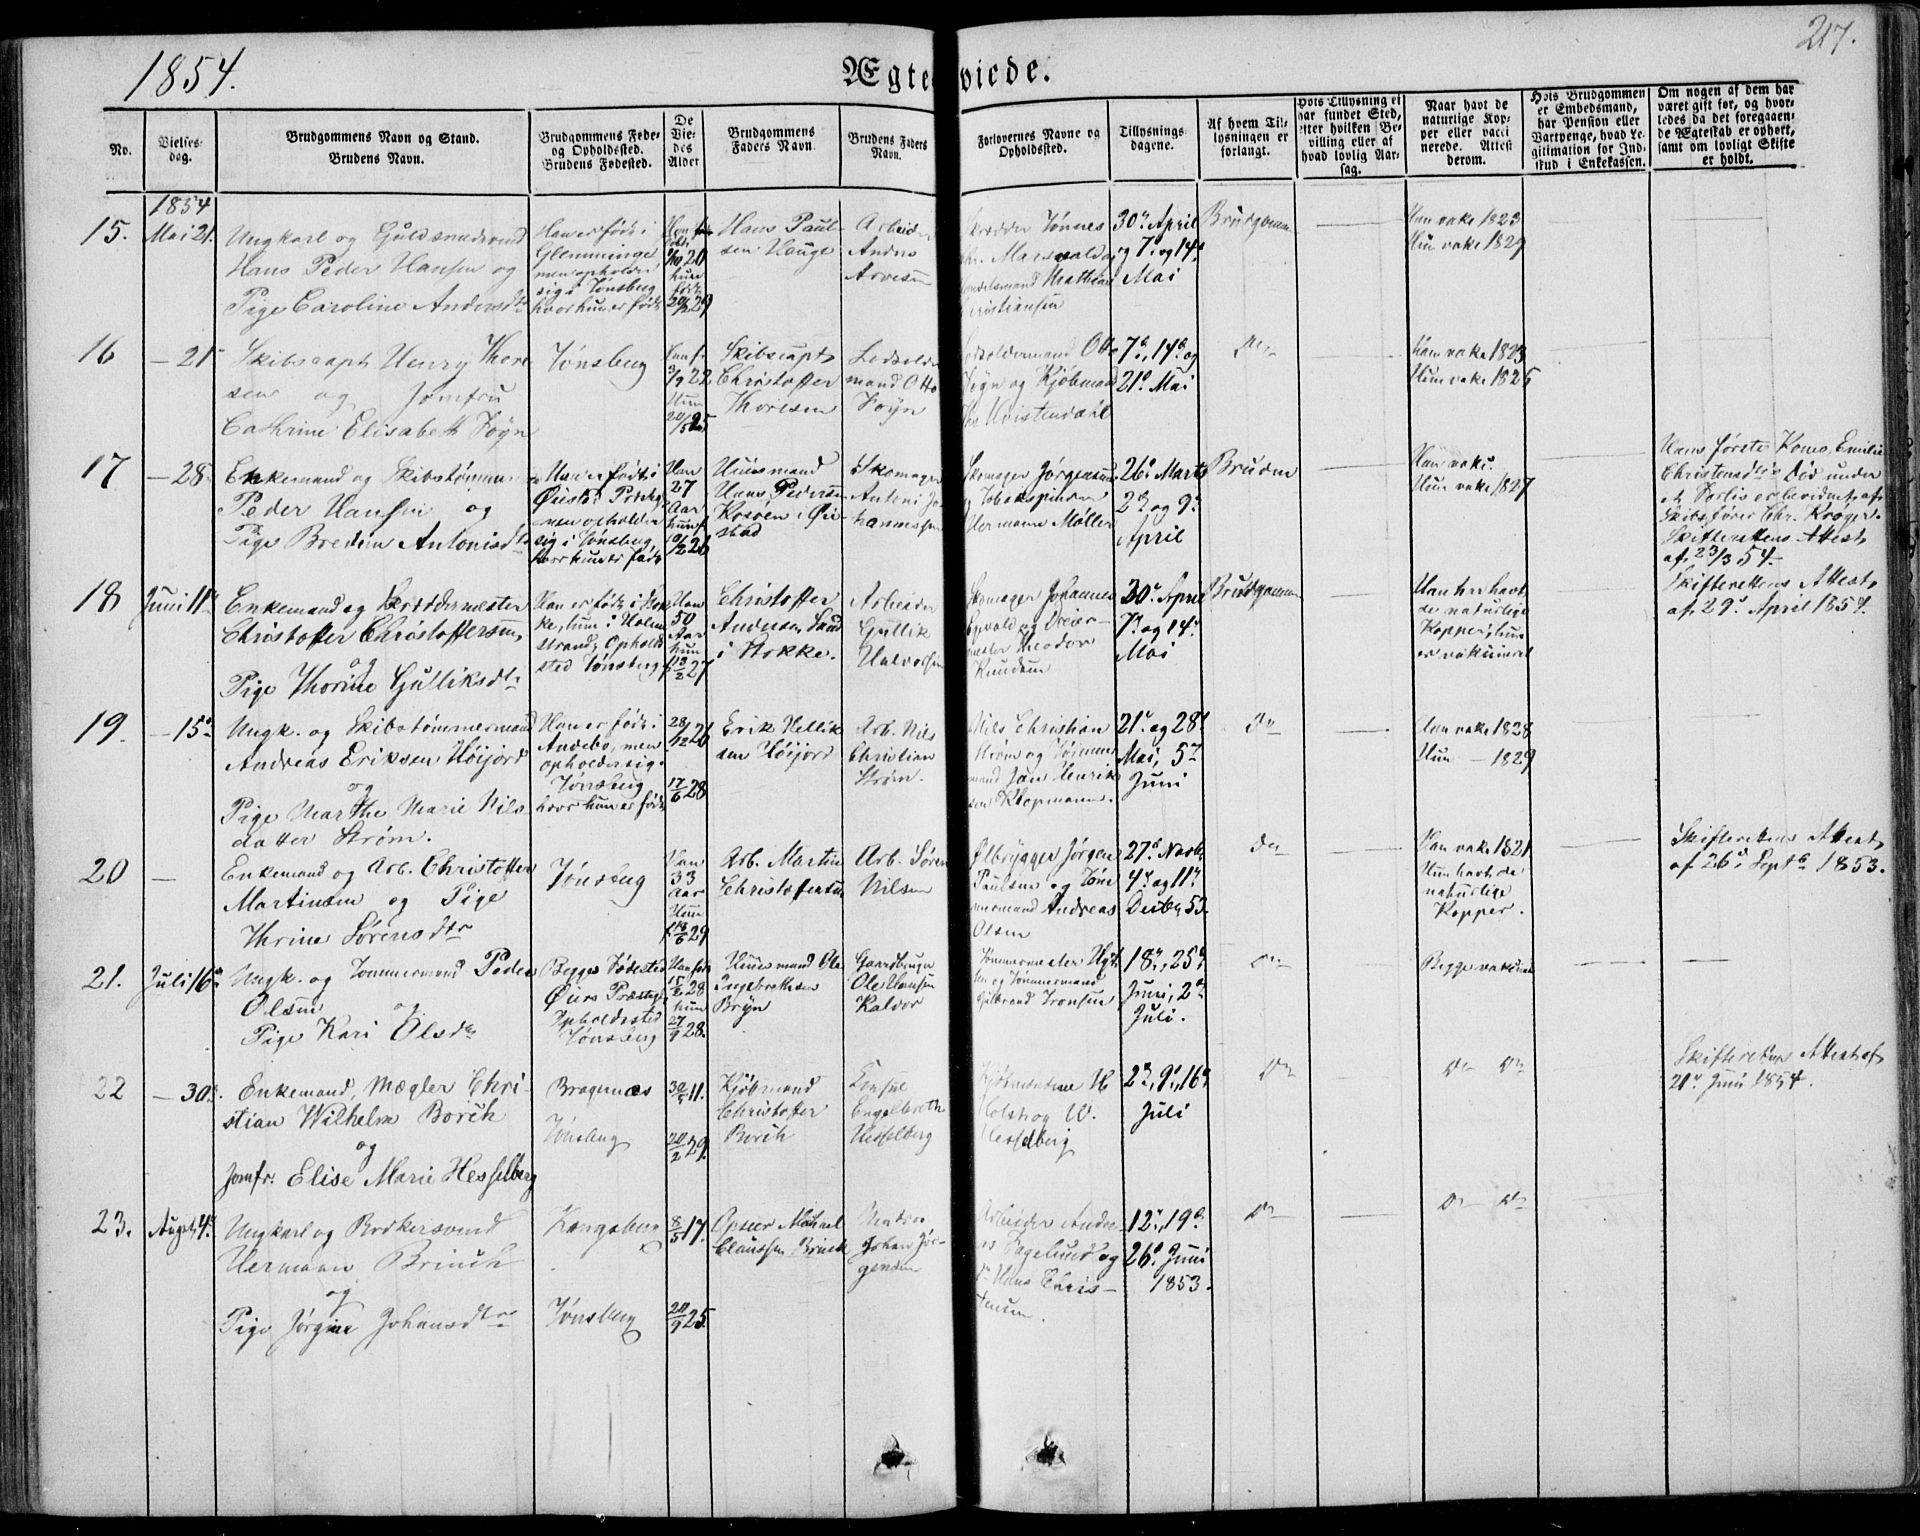 1854.
Ægteviede.
217.
No.
Vielses-
dag.
Brudgommens Navn og Stand.
Brudens Navn.
Brudgommens Føde-
og Opholdssted.
Brudens Fødested.
De
Vie-
des
Alder
Brudgommens
Faders Navn.
Brudens Faders
Navn.
Forlovernes Navne og
Opholdssted.
Tillysnings-
dagene.
Af hvem Til-
lysningen er
forlangt.
Hvis Tillysning ei
har fundet Sted,
efter hvilken Be-
villing eller af
hvad lovlig Aar-
sag.
Naar havt de
naturlige Kop-
per eller vacci-
nerede. Attest
derom.
Hvis Brudgommen
er Embedsmand,
har Pension eller
Vartpenge, hvad Le-
gitimation for Ind-
skud i Enkekassen.
Om nogen af dem har
været gift før, og hvor-
ledes da det foregaaen-
de Ægteskab er ophørt,
samt om lovligt Skifte
er holdt.
1854
15.
Mai 21.
Ungkarl og Guldsmedsvend
Hans Peder Hansen og
Pige Caroline Andersdtr
Han er født i
Glemminge
men opholder
sig i Tønsberg
hvor hun er født
20
hun
født
Hans Paul-
sen Hauge
Arbeider
Anders
Arvesen
Skrædder Tønnes
Mathias
Christiansen
30te April
og 7de og 14de
Mai
Brudgommen
Han vake 1823
Hun vake 1829
16
- 21
Skibscapt. Henry Thore-
sen og Jomfru
Cathrine Elisabeth Føyn
Tønsberg
Han f.
3/9 22
Hun
20/5 25
Skibscapt
Christoffer
Thoresen
Lodsolder-
mand Otto
Føyn
Lodsoldermand Otto
Føyn og Kjøbmand
Qvistendahl
7de, 14de og
21de Mai
Do
Han vake 1823
Hun vake 1826
17
- 28
Enkemand og Skibstømmerm.
Peder Hansen og
Pige Bredine Antonisdtr
Han er født i
Øiestad Præstegj
men opholder
sig i Tønsberg
hvor hun er født
Han
27
Aar
hun f.
10/2 26
Huusmand
Hans Pedersen
Kosøen i Øie-
stad
Skomager
Antoni Jo-
hannessen
Skomager Jørgensen
og Tobakspinder
Hermann Møller
26de Marts
2den og 9de
April
Bruden
Han vake.
Hun vake 1827
Hans første Kones, Emilie
Christensdtrs Død under
et Forlis er bevidnet af
Skibsfører Chr. Krøger.
Skifterettens Attest
af 23/3 54.
18
Juni 11te
Enkemand og Skræddermester
Christoffer Christoffersen
og
Pige Thorine Gulliksdtr
Han er født i Stok-
ke, hun i Holm-
strand, Ophold-
sted Tønsberg
Han
50
Aar
hun
f 13/2 27
Christoffer
Andersen Sand
i Stokke.
Arbeider
Gullik
Halvorsen
Skomager Johannes
Egvald og Dreier-
mester Theodor
Knudsen
30te April
7de og 14de
Mai
Brudgommen
Han har havt
de naturlige
Kopper, hun
er vakcineret
Skifterettens Attest
af 29de April 1854.
19.
- 15de
Ungk. og Skibstømmermand
Andreas Eriksen Høijord
og
Pige Marthe Marie Nils-
datter Strøm.
Han er født i
Andebo, men
opholder sig i
Tønsberg
hvor hun er født
28/12 26
17/6 28
Erik Hellik-
sen Høijord
Arb. Nils
Christian
Strøm.
Nils Christian
Strøm og Tømmer-
mand Jan Henrik-
sen Klopmann.
21de og 28de
Mai, 5te
Juni
Do
Han vake 1828
Hun - 1829
20
-
Enkemand og Arb. Christoffer
Martinsen og Pige
Thrine Sørensdtr
Tønsberg
Han
33
Aar
Hun
f 18/6 29
Arb. Martin
Christoffersen
Arb. Søren
Nilsen
Ølbrygger Jørgen
Paulsen og Tøm-
mermand Andreas
Olsen
27de Novbr
4de og 11te
Decbr 53.
Do
Han vake 1821
Hun havt de
naturlige
Kopper.
Skifterettens Attest
af 26de Septbr 1853.
21.
Juli 16de
Ungk. og Tømmermand Peder
Olsen og
Pige Kari Olsdtr
Begges Fødested
Øiers Præstegj
Opholdssted
Tønsberg
Han født
15/2 28
hun
27/9 28.
Huusmand Ole
Ingebretsen
Bryn
Gaardbruger
Ole Hansen
Kalvor
Tømmermester
og Tømmermand
Gulbrand Tronsen
18de, 25de
Juni, 2den
Juli.
Do
Begge vakcineret
22
- 30de
Enkemand, Mægler Chri-
stian Wilhelm Borch
og
Jomfr. Elise Marie Hesselberg
Bragernæs
Tønsberg
11.
20/2 29.
Kjøbmand
Christoffer
Borch
Consul
Engelbreth
Hesselberg
Kjøbmændene H
Holst og W.
Hesselberg
2den, 9de, 16de
Juli
Do
Do Do
Skifterettens Attest af
21de Juni 1854.
23.
August 4de
Ungkarl og Bødkersvend
Hermann Brinch
og
Pige Jørgine Johansdtr
Kongsberg
Tønsberg
8/5 17.
20/9 25.
Opseer Michael
Claussen Brinck
Matros
Johan Jør-
gensen
Arbeider Andre-
as Fagelund og
Do Hans Chris-
tensen.
12te, 19de
26de Juni
1853.
Do
Do Do